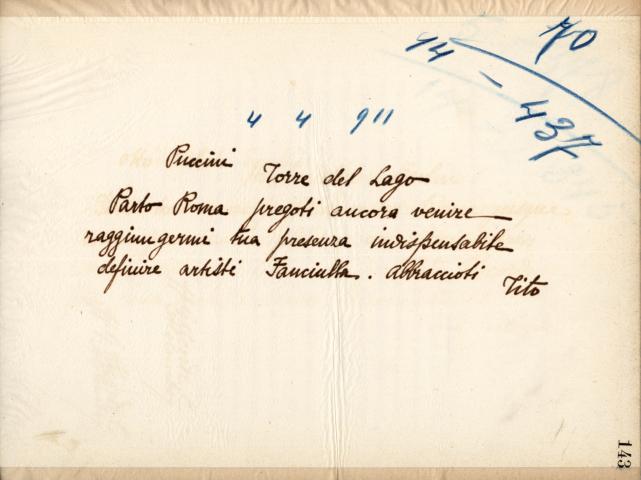 70
94 - 437
4 4 911
Puccini
Torre del Lago
Parto Roma pregoti ancora venire
raggiungermi tua presenza indispensabile
definire artisti Fanciulla. abbraccioti
Tito
143